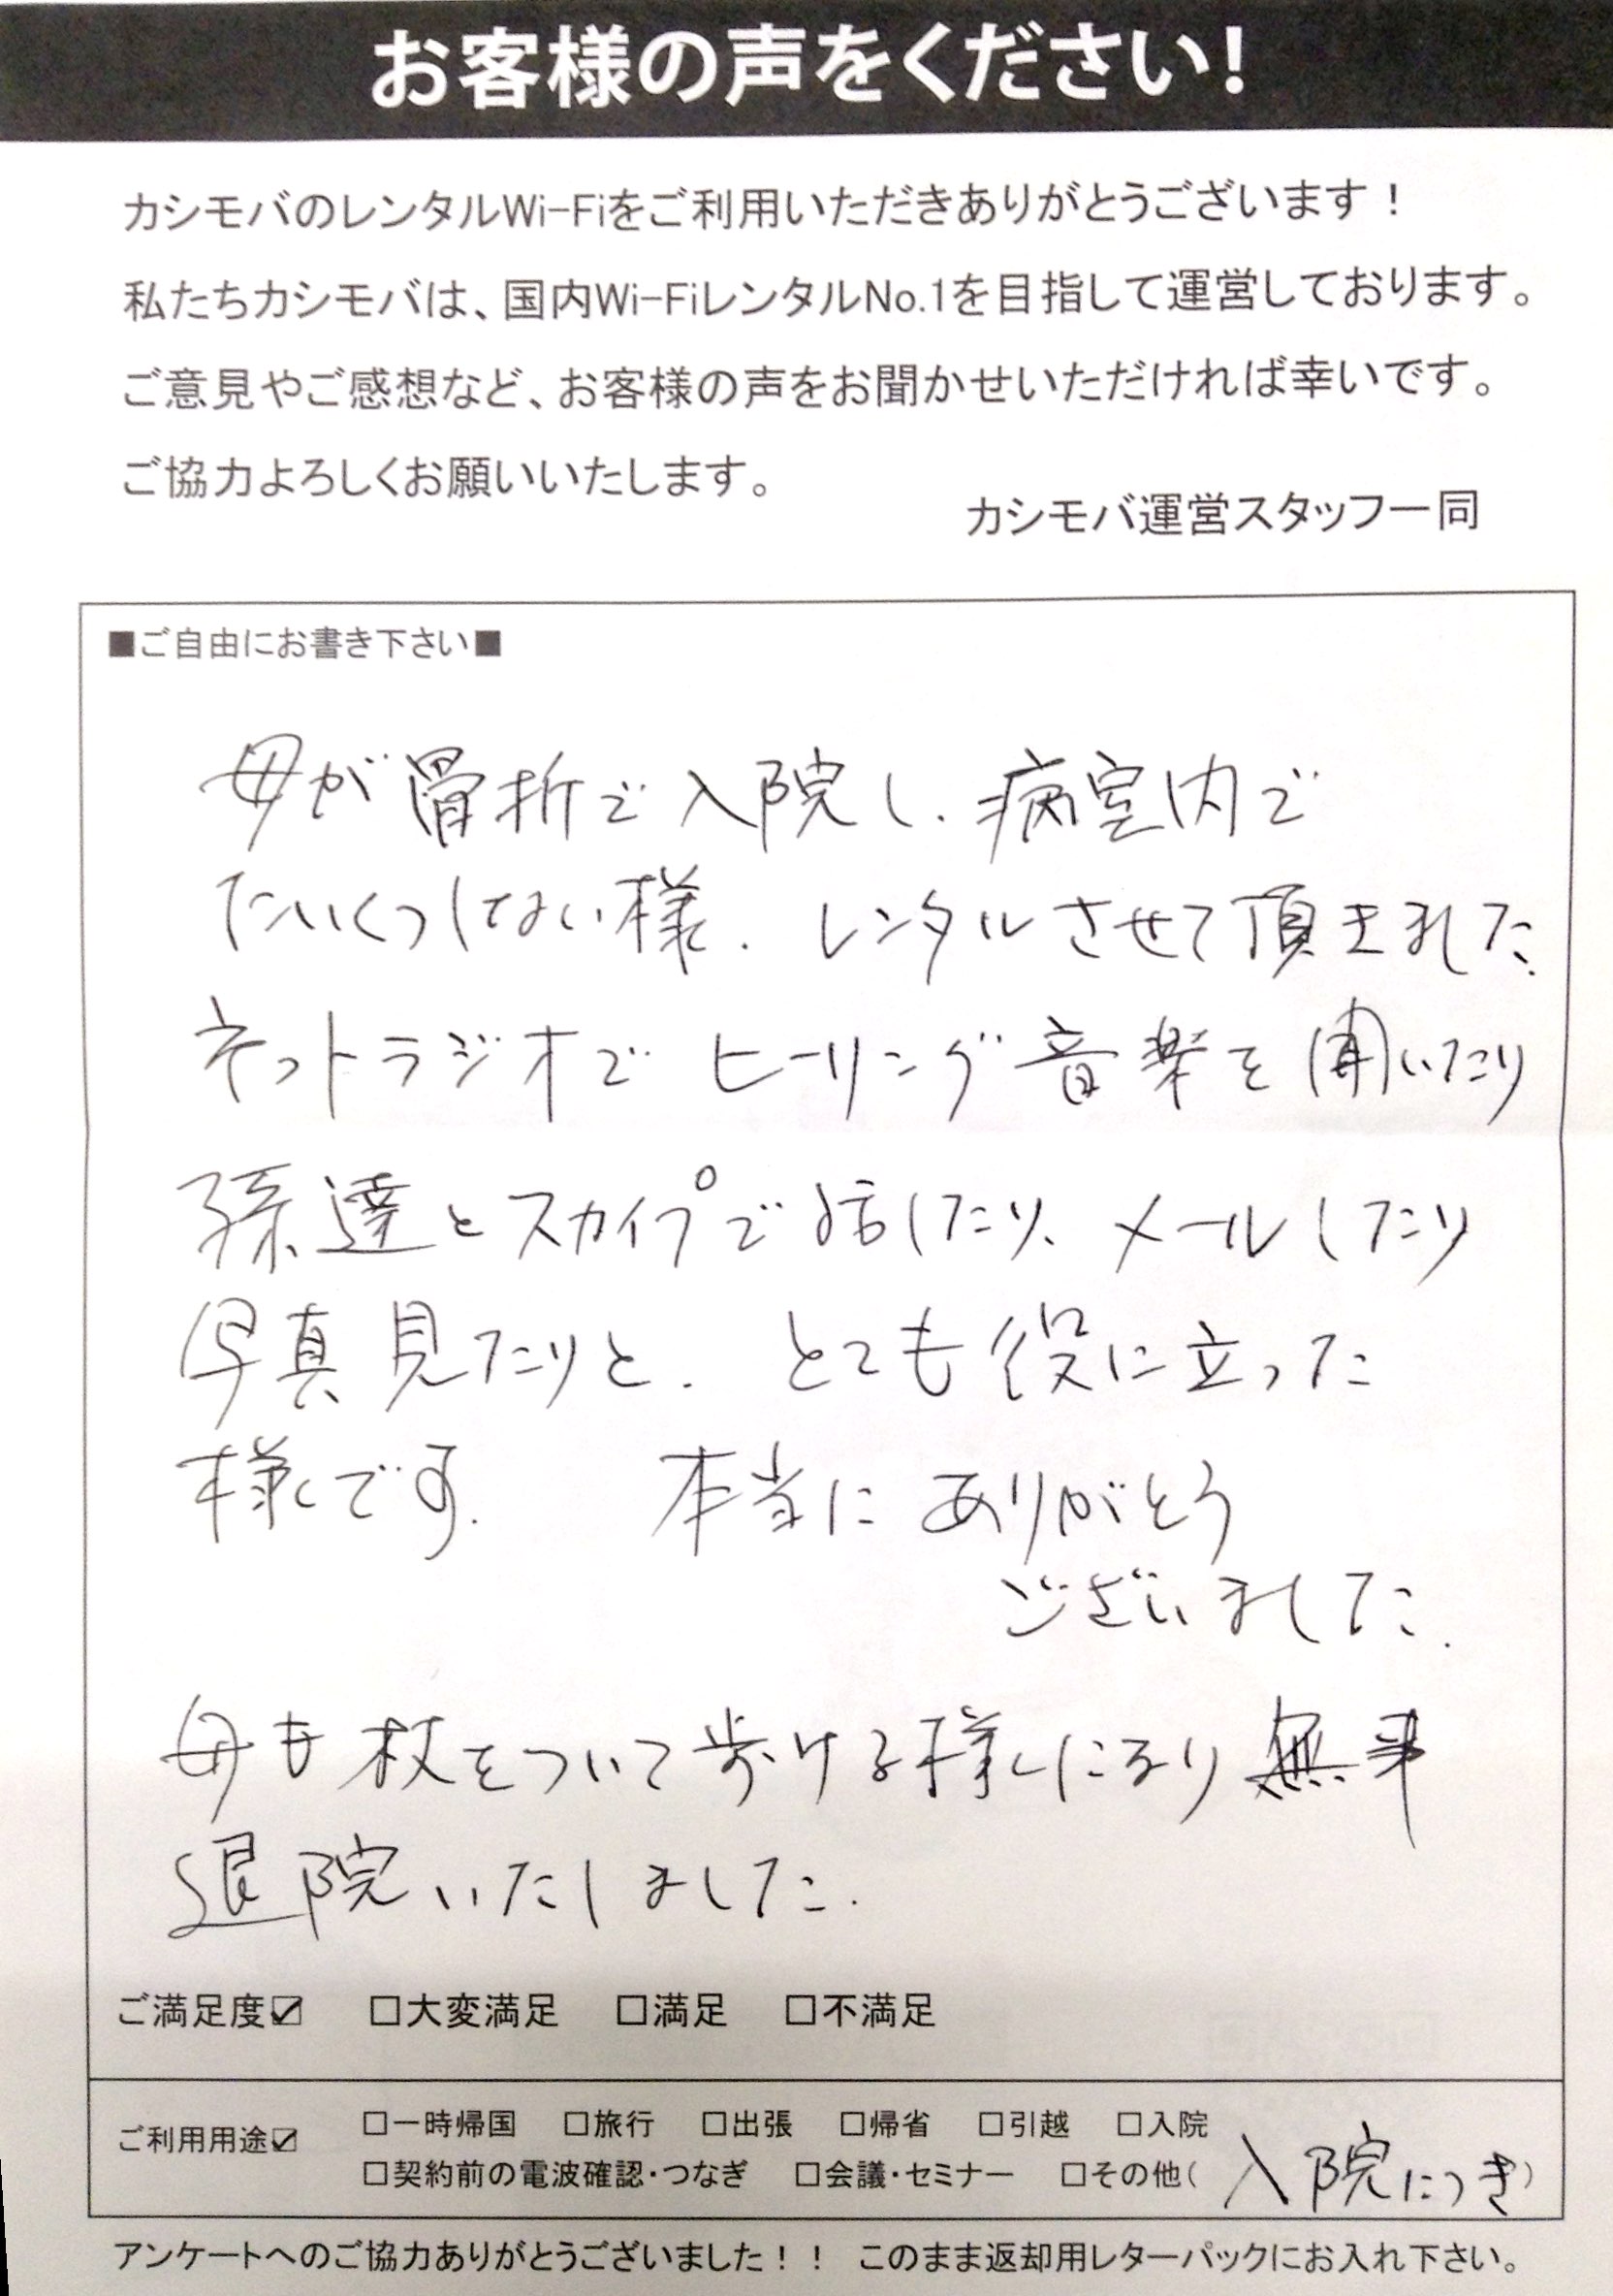 お客様の声をください!
カシモバのレンタルWi-Fiをご利用いただきありがとうございます！
私たちカシモバは、国内Wi-FiレンタルNo.1を目指して運営しております。
ご意見やご感想など、お客様の声をお聞かせいただければ幸いです。
ご協力よろしくお願いいたします。
カシモバ運営スタッフ一同
■ご自由にお書き下さい■
母が骨折で入院し、病室内で
たいくつしない様、レンタルさせて頂きました。
ネットラジオでヒーリング音楽を聞いたり
孫達とスカイプで話したり、メールしたり
写真見たりと、とても役に立った
様です。 本当にありがとう
ございました。
母も杖をついて歩ける様になり無事
退院いたしました。
ご満足度☑ □大変満足 □満足 □不満足
ご利用用途☑ □一時帰国 □旅行 □出張 □帰省 □引越 □入院
□契約前の電波確認・つなぎ □会議・セミナー □その他(入院につき)
アンケートへのご協力ありがとうございました！！ このまま返却用レターパックにお入れ下さい。